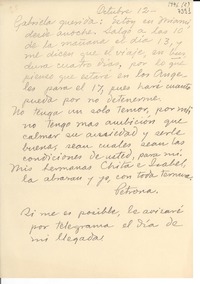 Octubre 12 -
Gabriela querida: Estoy en Miami
desde anoche. Salgo a las 10
de la mañana el día 13, y
me dicen que el viaje, en tren
dura cuatro días, por lo que
pienso que estaré en los Ange-
les para el 17, pues haré cuanto
pueda por no detenerme.
No tenga un solo temor, por mí,
no tengo mas ambición que
calmar su ansiedad y serle
buena, sean cuales sean las
condiciones de usted, para mí.
Mis hermanas Chita e Isabel,
la abrazan y yo, con toda ternura,
Petrona.
Si me es posible, le avisaré
por telegrama el día de
mi llegada.